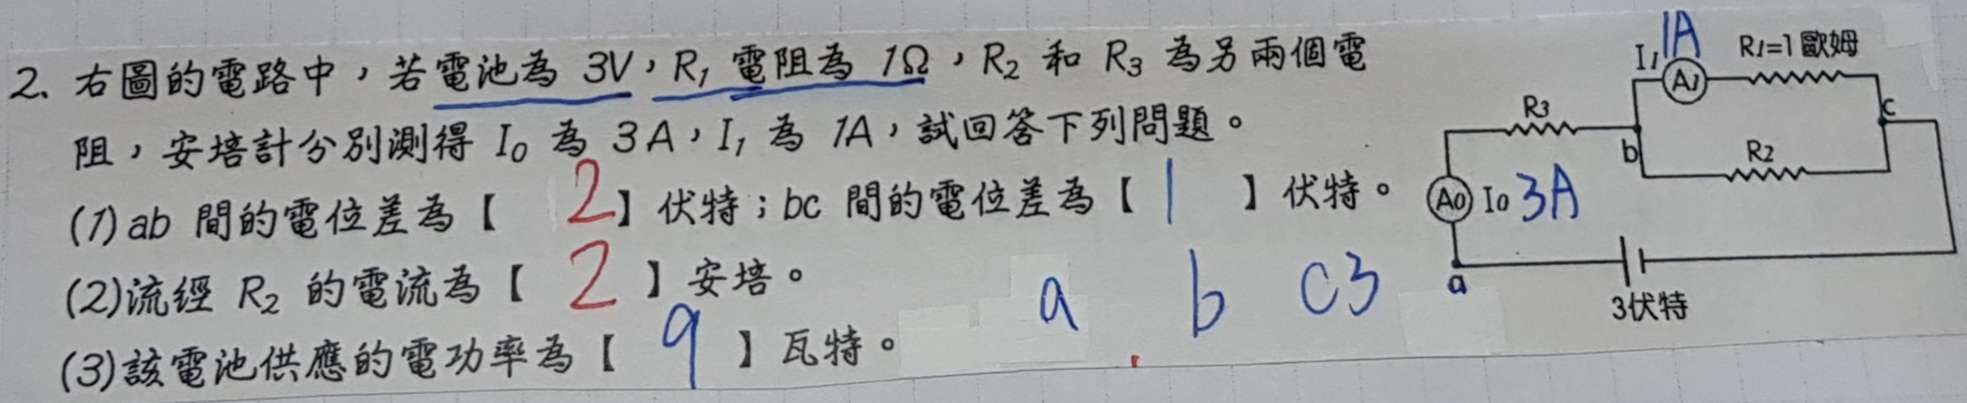 2. 右圖的電路中，若電池為 3V，R1 電阻為 1Ω，R2 和 R3 為另兩個電
阻，安培計分別測得 I0 為 3A，I1 為 1A，試回答下列問題。
(1)ab 間的電位差為【 2】伏特；bc 間的電位差為【 1 】伏特。
(2)流經 R2 的電流為【 2 】安培。
(3)該電池供應的電功率為【 9 】瓦特。
a b C3
I1 1A R1=1歐姆
A1
R3
c
b
R2
A0 I0 3A
a
3伏特